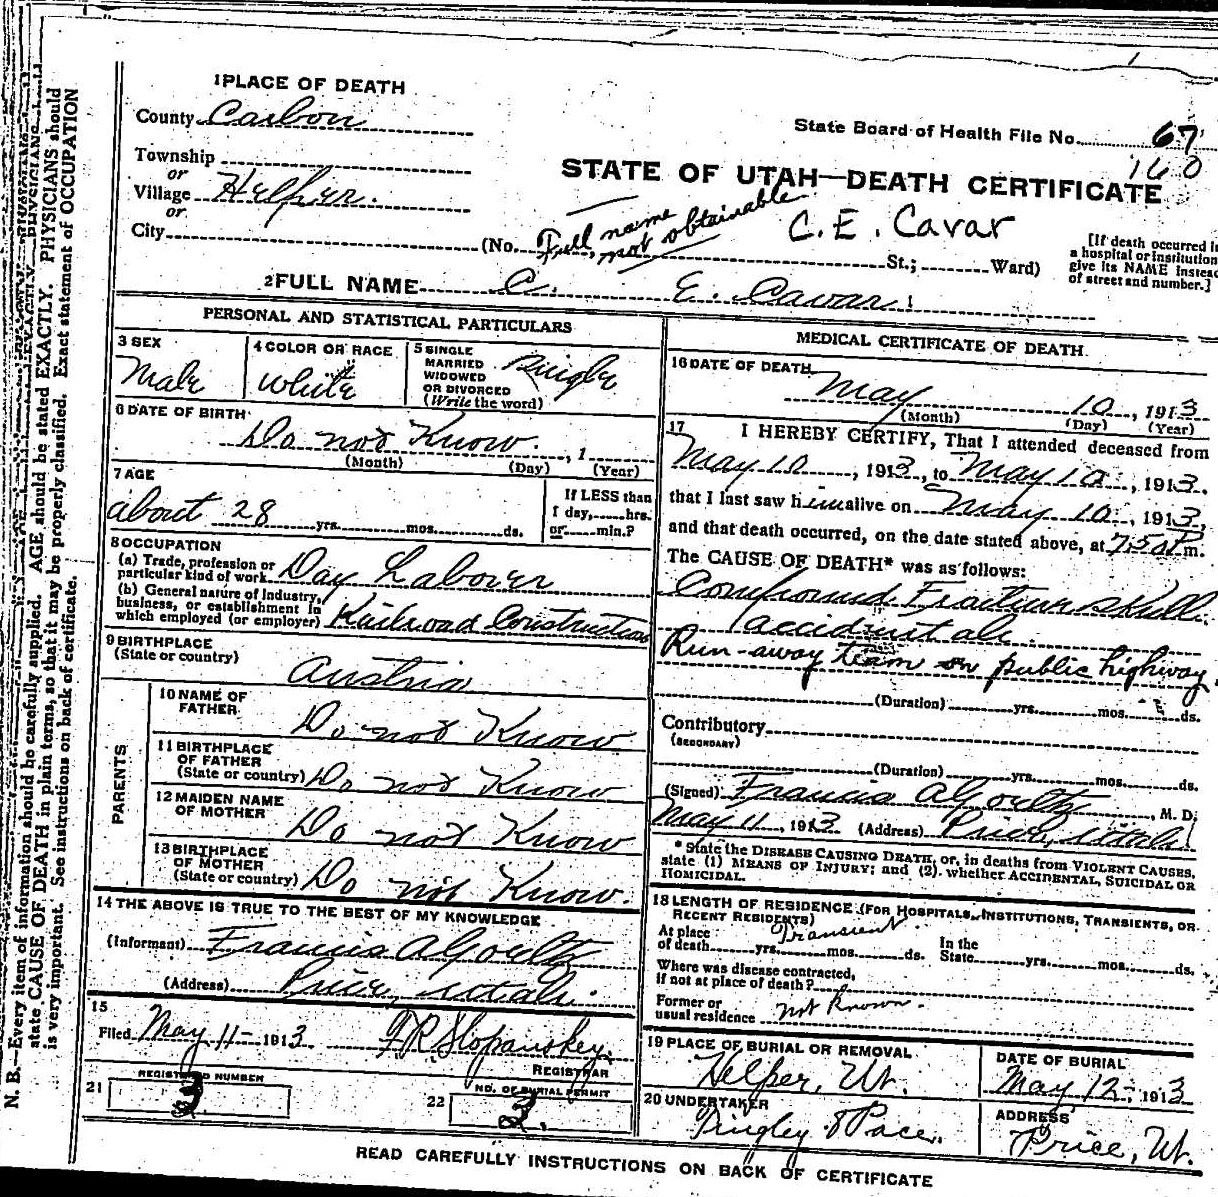 1 PLACE OF DEATH
County Carbon
Township
or
Village Helper.
or
City
State Board of Health File No. 67
160
STATE OF UTAH—DEATH CERTIFICATE
C. E. Cavar
(No. Full name not obtainable St.; Ward)
[If death occurred in
a hospital or institution
give its NAME instead
of street and number.]
2 FULL NAME C. E. Cavar
PERSONAL AND STATISTICAL PARTICULARS
3 SEX
Male
4 COLOR OR RACE
White
5 SINGLE
MARRIED
WIDOWED
OR DIVORCED
(Write the word)
Single
6 DATE OF BIRTH
Do not Know. , 1
(Month) (Day) (Year)
7 AGE
about 28 yrs. mos. ds.
If LESS than
1 day, hrs.
or min.?
8 OCCUPATION
(a) Trade, profession or
particular kind of work Day Laborer
(b) General nature of Industry,
business, or establishment in
which employed (or employer) Railroad Construction
9 BIRTHPLACE
(State or country)
Austria
PARENTS
10 NAME OF
FATHER
Do not Know
11 BIRTHPLACE
OF FATHER
(State or country) Do not Know
12 MAIDEN NAME
OF MOTHER
Do not Know
13 BIRTHPLACE
OF MOTHER
(State or country) Do not Know.
14 THE ABOVE IS TRUE TO THE BEST OF MY KNOWLEDGE
(Informant) Francis A
(Address) Price, Utah.
15
Filed May 11 - 1913.
REGISTRAR
21
REGISTERED NUMBER
3
22
NO. OF BURIAL PERMIT
3.
MEDICAL CERTIFICATE OF DEATH
16 DATE OF DEATH
May 10, 1913
(Month) (Day) (Year)
17 I HEREBY CERTIFY, That I attended deceased from
May 10, 1913, to May 10, 1913,
that I last saw him alive on May 10, 1913,
and that death occurred, on the date stated above, at 7.50 P m.
The CAUSE OF DEATH* was as follows:
Compound Fracture Skull.
accidental.
Run-away team on public highway.
(Duration) yrs. mos. ds.
Contributory
(SECONDARY)
(Duration) yrs. mos. ds.
(Signed) Francis A , M. D.
May 11, 1913 (Address) Price, Utah
* State the DISEASE CAUSING DEATH, or, in deaths from VIOLENT CAUSES,
state (1) MEANS OF INJURY; and (2) whether ACCIDENTAL, SUICIDAL OR
HOMICIDAL.
18 LENGTH OF RESIDENCE (FOR HOSPITALS, INSTITUTIONS, TRANSIENTS, OR
RECENT RESIDENTS)
Transient.
At place
of death yrs. mos. ds.
In the
State yrs. mos. ds.
Where was disease contracted,
if not at place of death?
Former or
usual residence not Known.
19 PLACE OF BURIAL OR REMOVAL
Helper, Ut.
DATE OF BURIAL
May 12, 1913
20 UNDERTAKER
& Pace.
ADDRESS
Price, Ut.
READ CAREFULLY INSTRUCTIONS ON BACK OF CERTIFICATE
N. B.—Every item of information should be carefully supplied. AGE should be stated EXACTLY. PHYSICIANS should
state CAUSE OF DEATH in plain terms, so that it may be properly classified. Exact statement of OCCUPATION
is very important. See instructions on back of certificate.